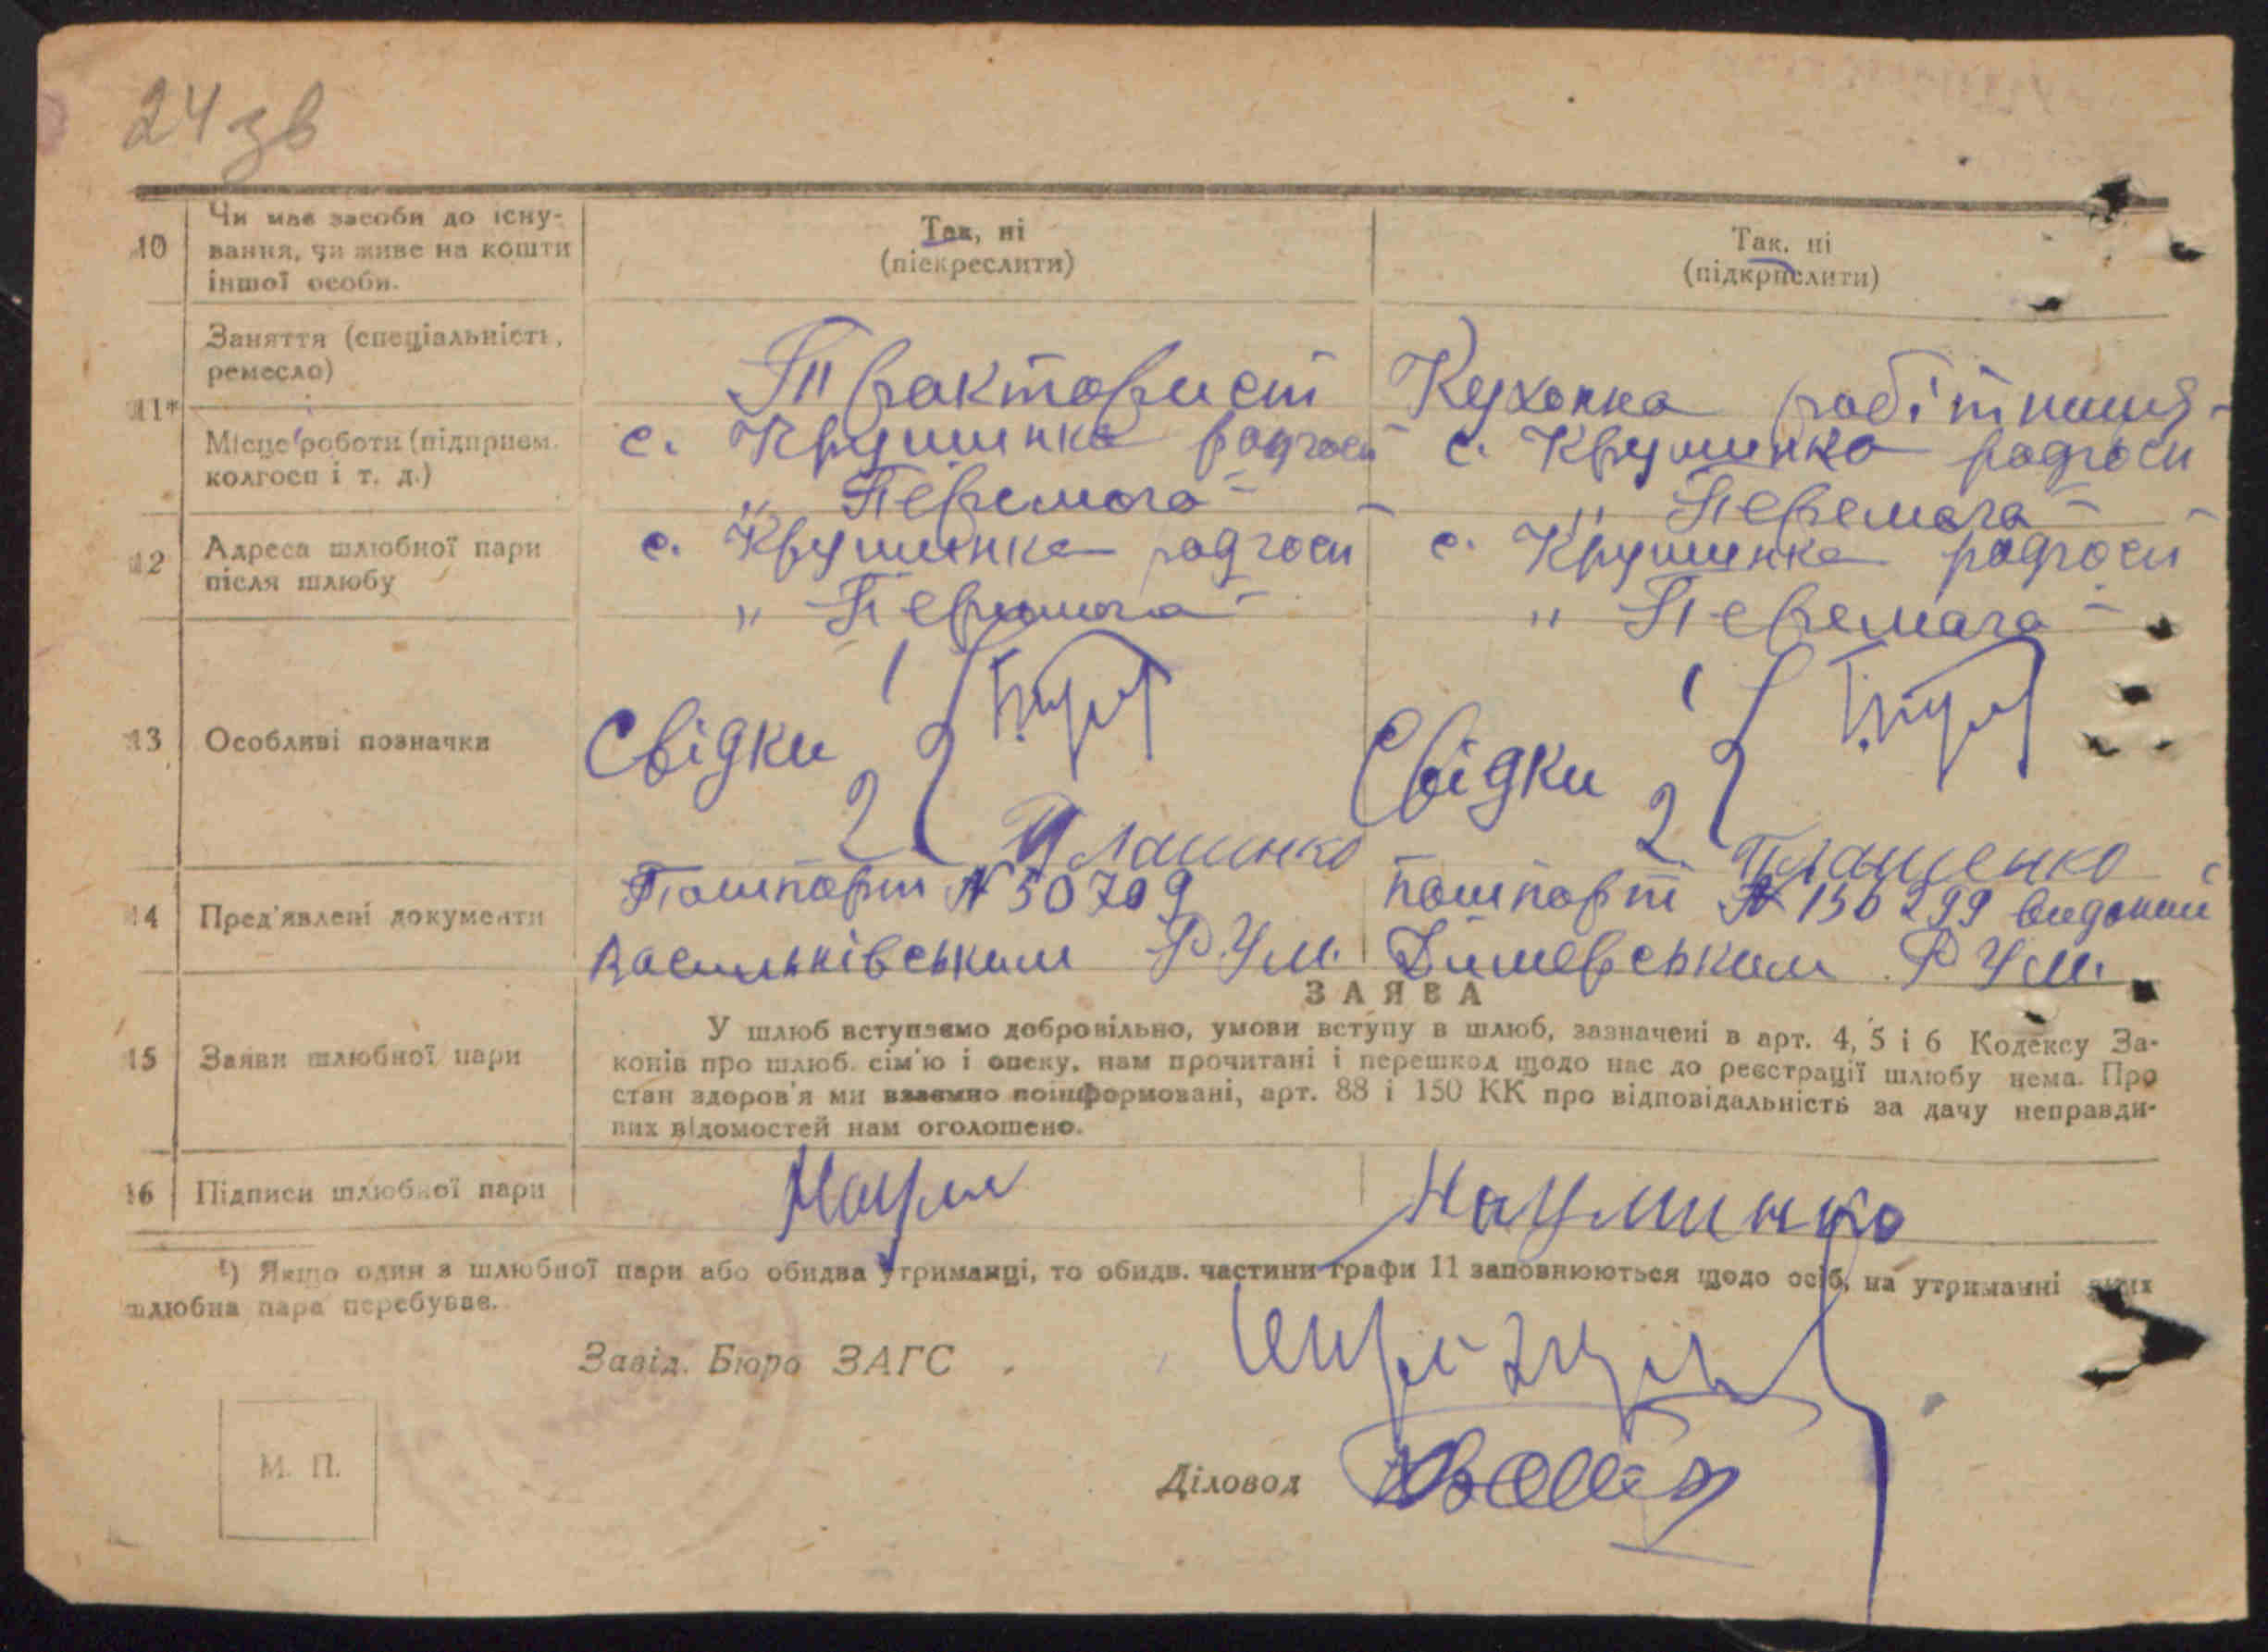 24 зв
10
Чи має засоби до існу-
вання, чи живе на кошти
іншої особи.
Так, ні
(піекреслити)
Так, ні
(підкрпслити)
11*
Заняття (спеціальність,
ремесло)
Тракторист
Кухонна робітниця
Місце роботи (підприєм.
колгосп і т. д.)
с. Крушинка радгосп
"Перемога"
с. Крушинка радгосп
"Перемога"
12
Адреса шлюбної пари
після шлюбу
с. Крушинка радгосп
"Перемога"
с. Крушинка радгосп
"Перемога"
13
Особливі позначки
Свідки
1
2
Свідки
1
2
Плашенко
14
Пред'явлені документи
Пашпорт № 50709
Васильківським РУМ.
пашпорт № 156299 виданий
РУМ.
15
Заяви шлюбної пари
ЗАЯВА
У шлюб вступаємо добровільно, умови вступу в шлюб, зазначені в арт. 4, 5 і 6 Кодексу За-
конів про шлюб. сім'ю і опеку, нам прочитані і перешкод щодо нас до реєстрації шлюбу нема. Про
стан здоров'я ми взаємно поінформовані, арт. 88 і 150 КК про відповідальність за дачу неправди-
вих відомостей нам оголошено.
16
Підписи шлюбної пари
Науменко
¹) Якщо один з шлюбної пари або обидва утриманці, то обидв. частини графи 11 заповнюються щодо осіб, на утриманні яких
шлюбна пара перебуває.
Завід. Бюро ЗАГС
М. П.
Діловод